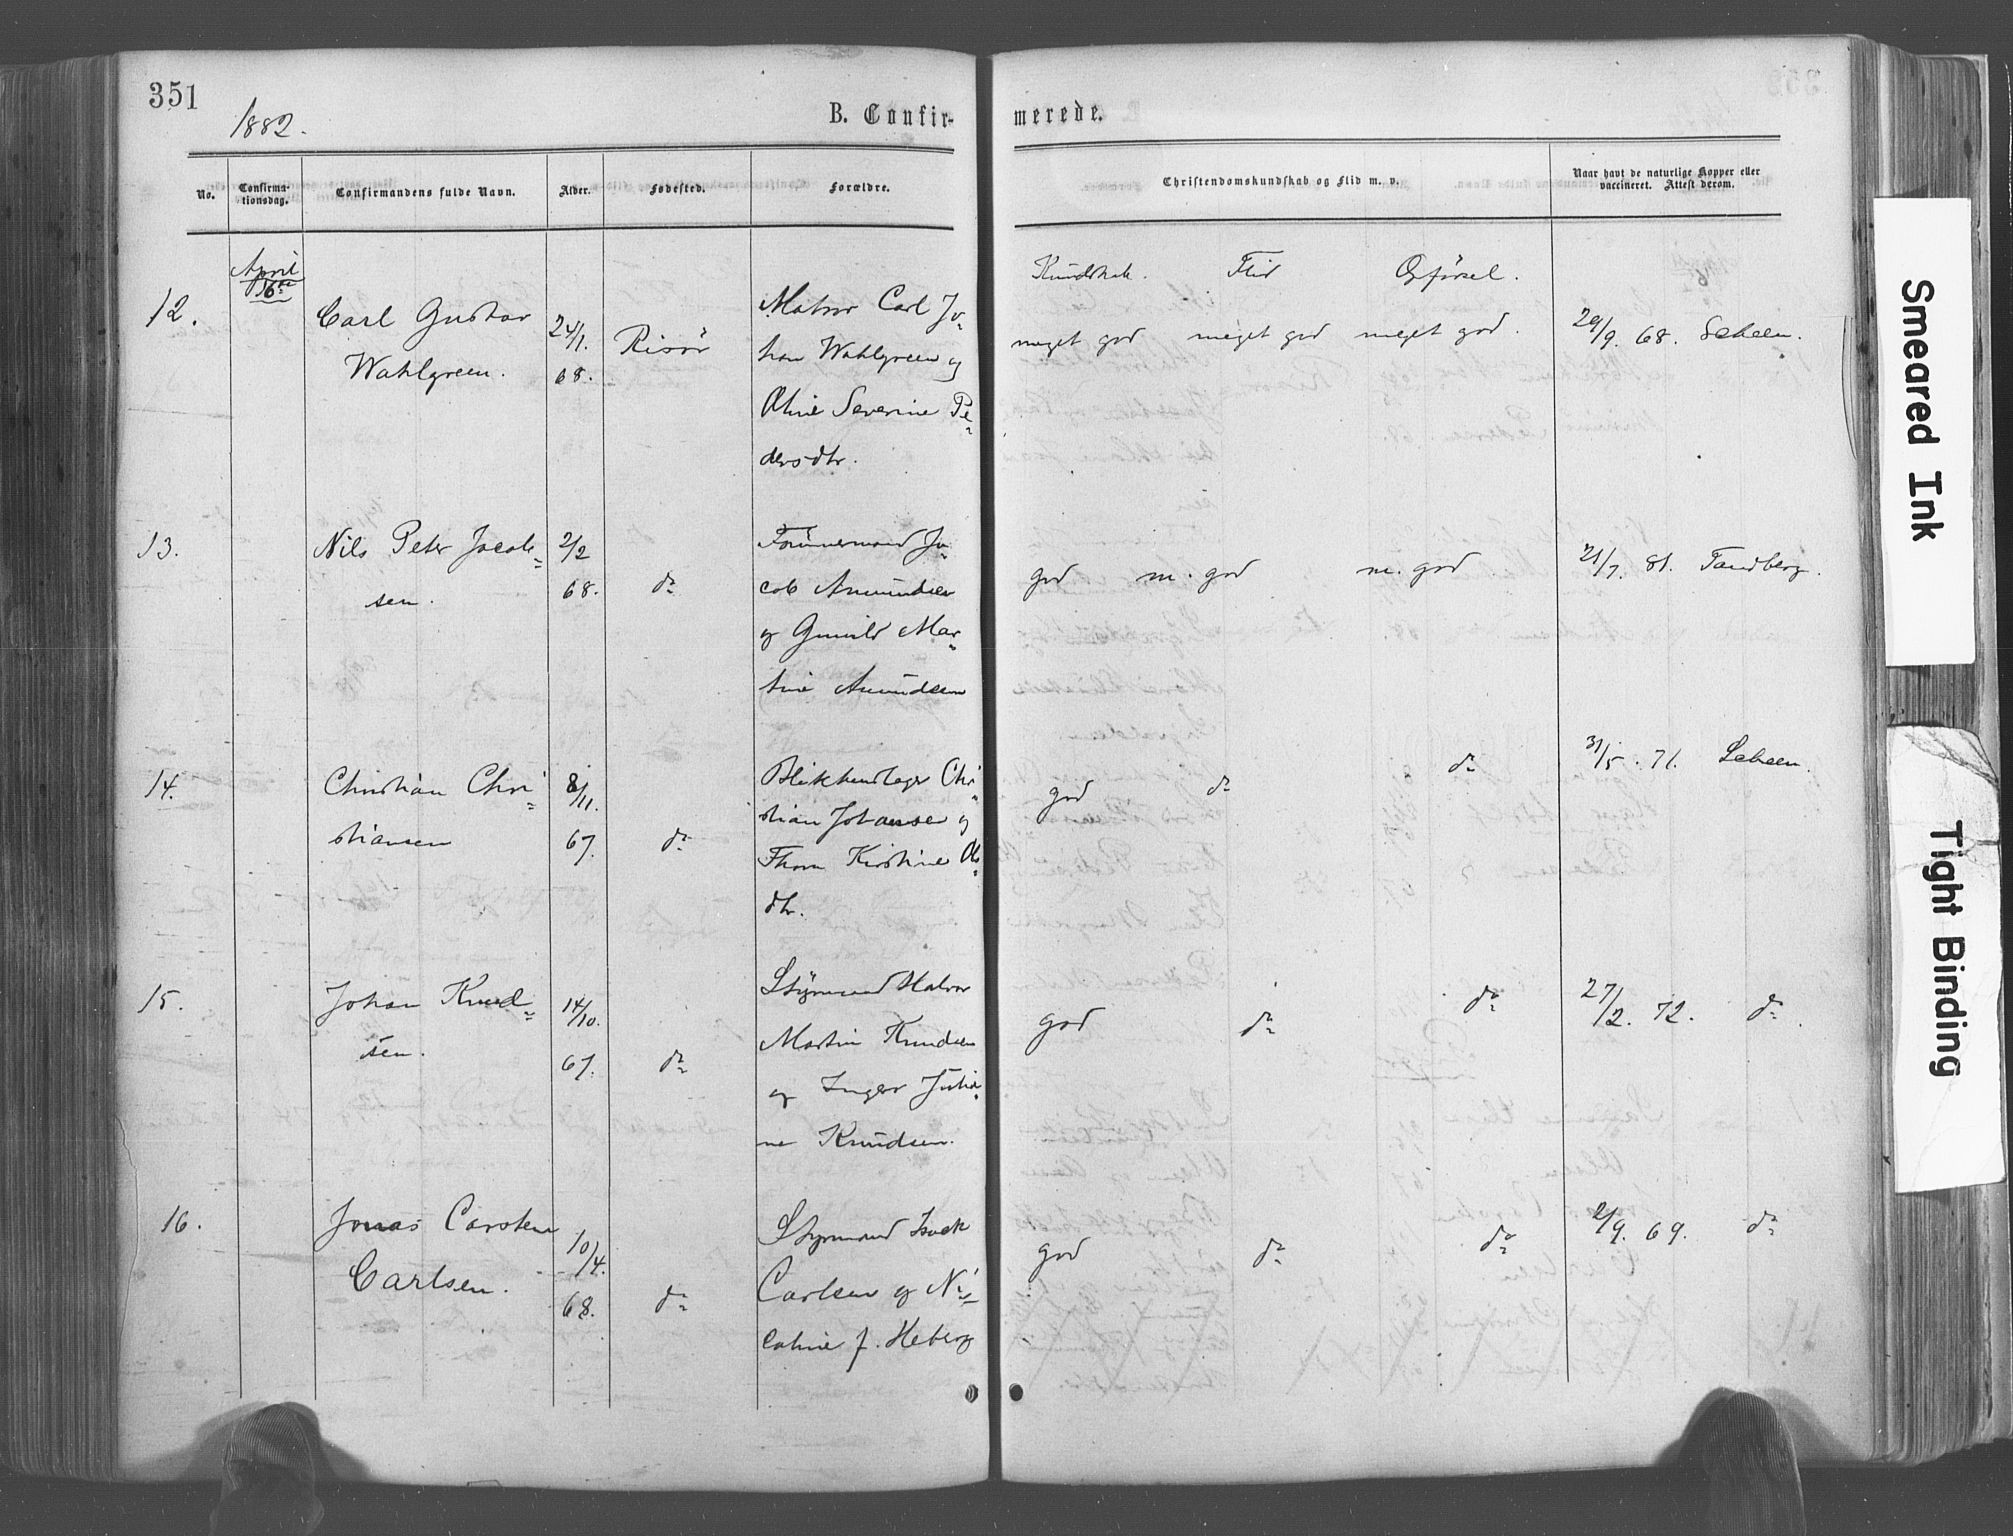 351
1882.
B. Confir-
merede.
No.
Confirma-
tionsdag.
Confirmandens fulde Navn.
Alder.
Fødested.
Forældre.
Christendomskundskab og Flid m. v.
Naar havt de naturlige Kopper eller
vaccineret. Attest derom.
April
16de
Kundskab. Flid Opførsel.
12.
Carl Gustav
Wahlgreen.
24/1.
68.
Risör
Matros Carl Jo-
han Wahlgreen og
Oline Severine Pe-
dersdtr.
meget god meget god meget god.
29/9. 68. Scheen.
13.
Nils Peter Jacob-
sen.
2/2
68.
do
Tømmermand Ja-
cob Amundsen
og Gunild Mar-
tine Amundsen
god m. god m. god.
21/7. 81. Tandberg.
14.
Christian Chri-
stiansen
8/11.
67.
do
Blikkenslager Chri-
stian Johansen og
Thora Kirstine Ols-
dtr.
god do do
31/5. 71. Scheen.
15.
Johan Knud-
sen.
14/10.
67.
do
Styrmand Halvor
Martin Knudsen
og Inger Julia-
ne Knudsen.
god do do
27/2. 72. do.
16.
Jonas Carsten
Carlsen.
10/4.
68.
do
Styrmand Isack
Carlsen og Ni-
coline f. Heberg
god do do
2/9. 69. do
Smeared Ink
Tight Binding